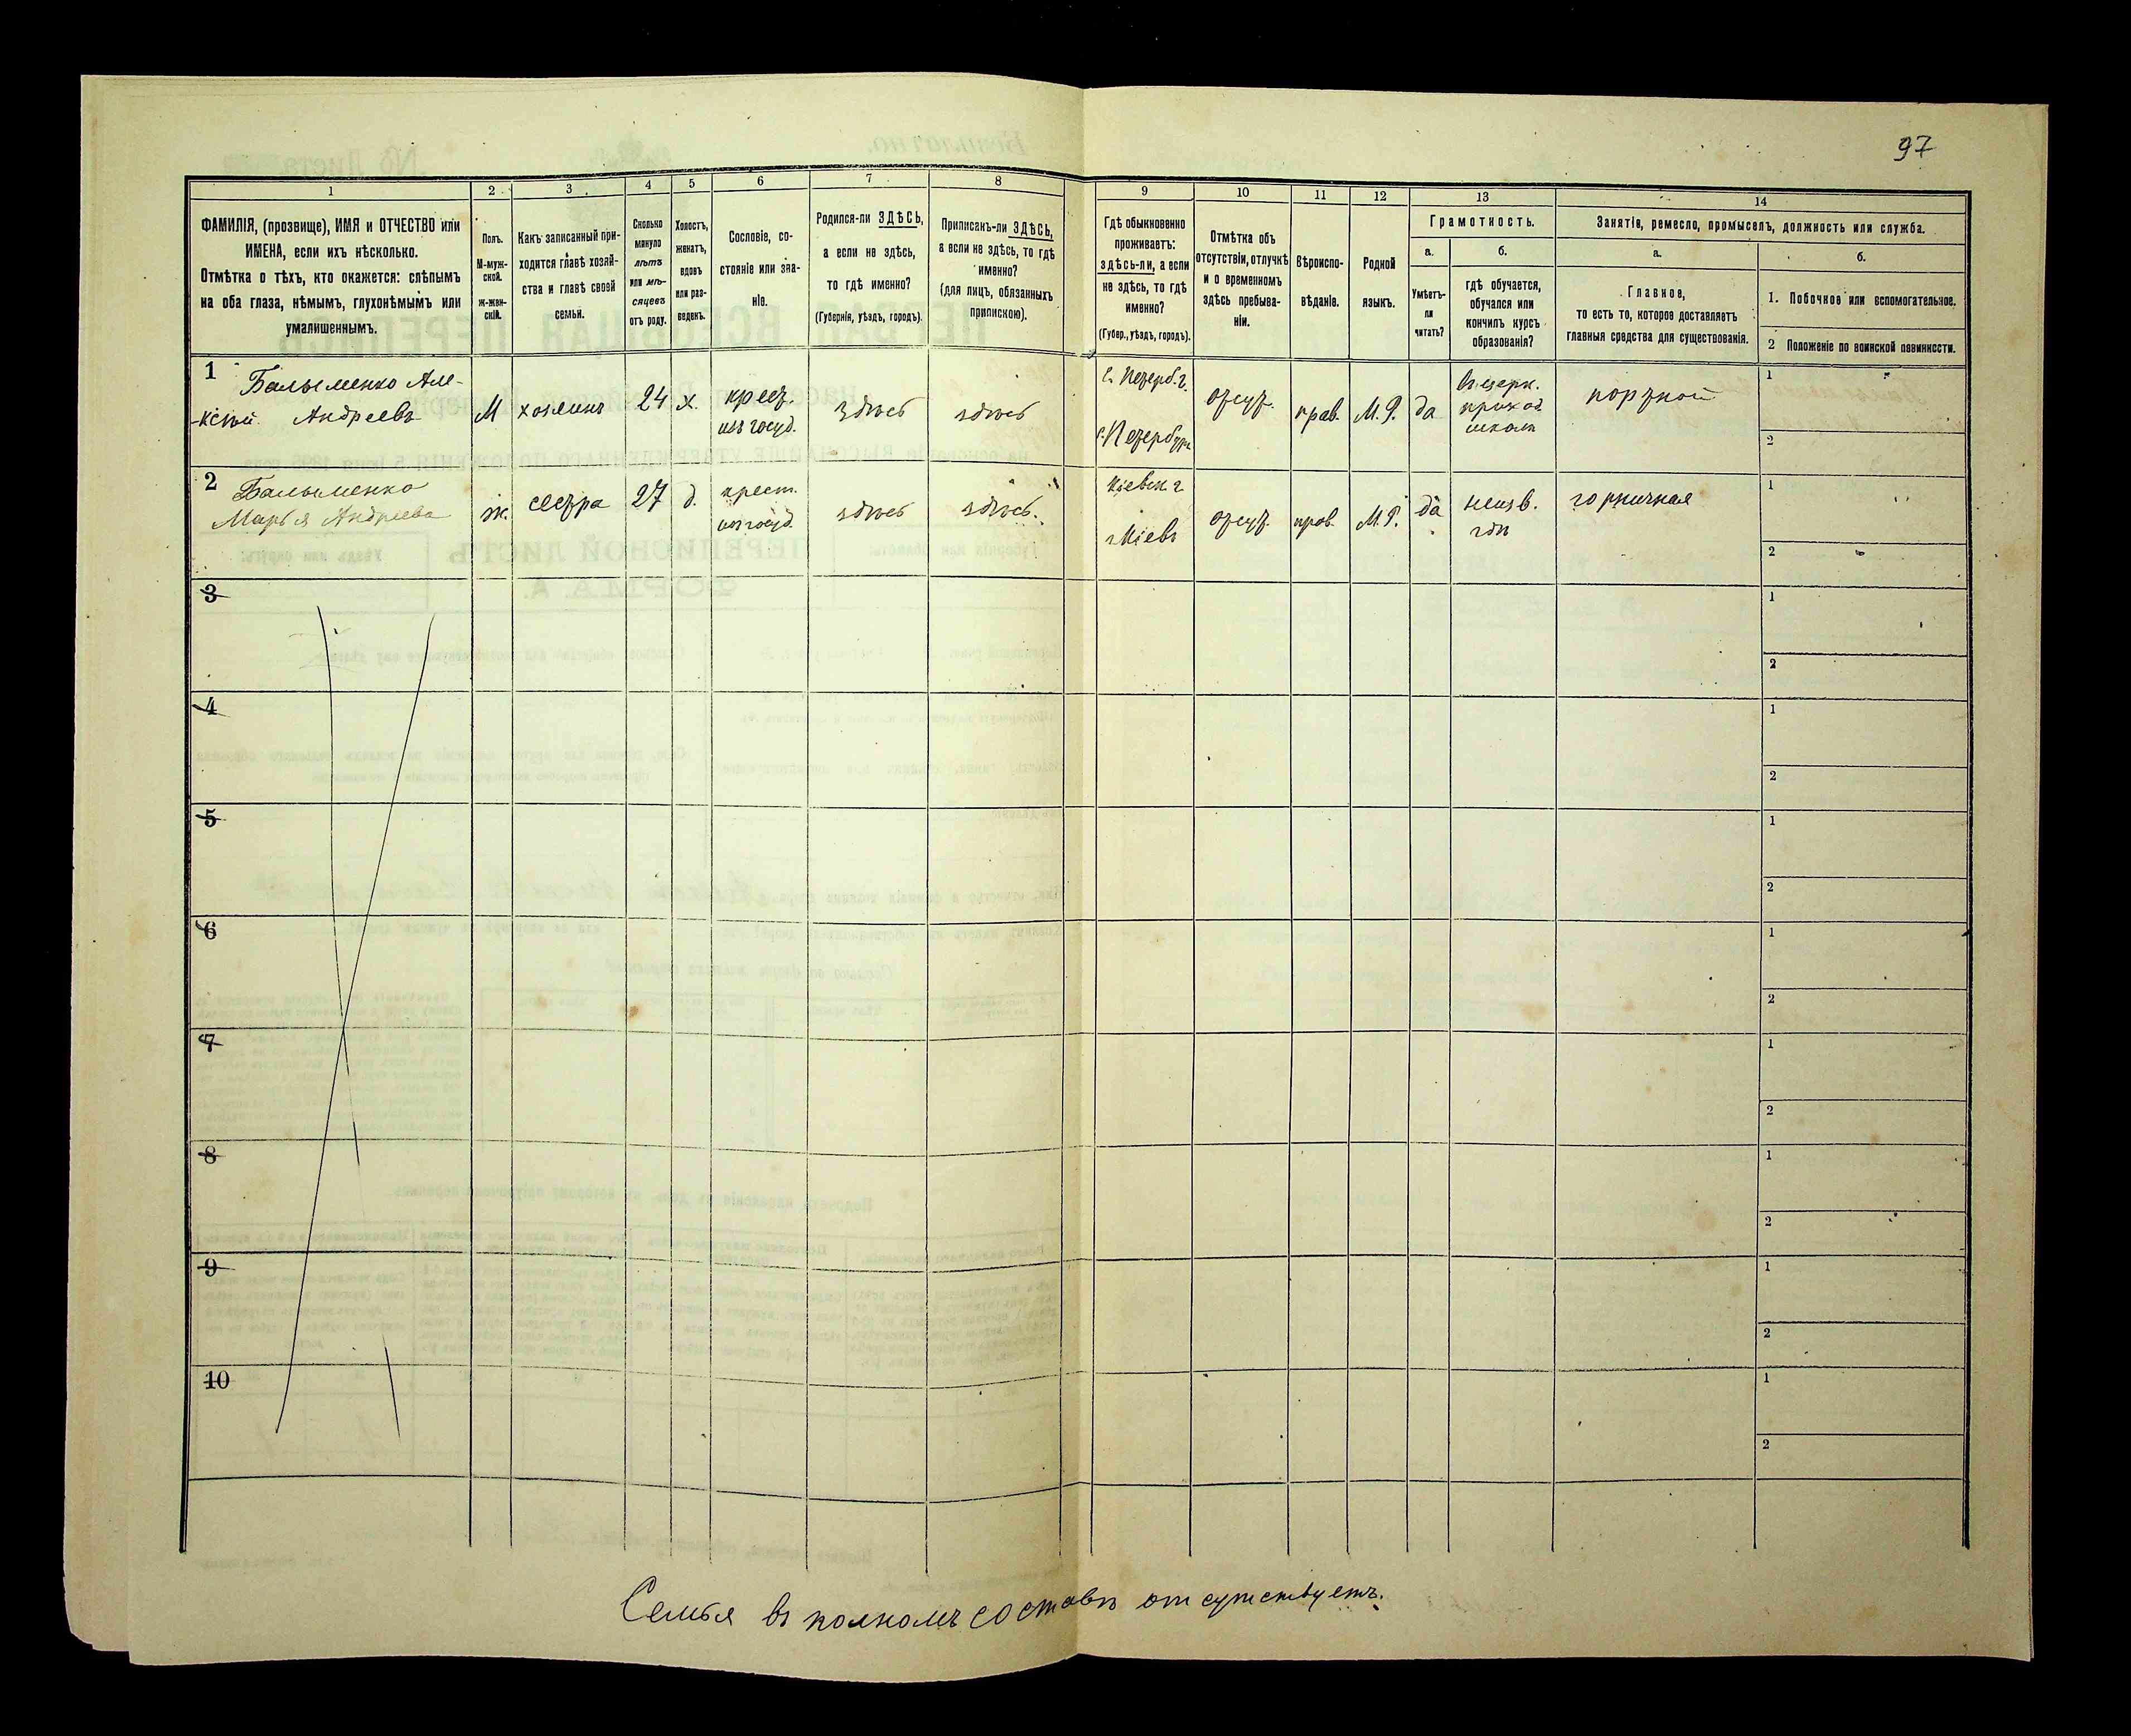 97
1 2 3 4 5 6 7 8 9 10 11 12 13 14
ФАМИЛІЯ, (прозвище), ИМЯ и ОТЧЕСТВО или
ИМЕНА, если ихъ нѣсколько.
Отмѣтка о тѣхъ, кто окажется: слѣпымъ
на оба глаза, нѣмымъ, глухонѣмымъ или
умалишеннымъ.
Полъ.
М-муж-
ской.
ж-жен-
скій.
Какъ записанный при-
ходится главѣ хозяй-
ства и главѣ своей
семьи.
Сколько
минуло
лѣтъ
или мѣ-
сяцевъ
отъ роду.
Холостъ,
женатъ,
вдовъ
или раз-
веденъ.
Сословіе, со-
стояніе или зва-
ніе.
Родился-ли ЗДѢСЬ,
а если не здѣсь,
то гдѣ именно?
(Губернія, уѣздъ, городъ).
Приписанъ-ли ЗДѢСЬ,
а если не здѣсь, то гдѣ
именно?
(для лицъ, обязанныхъ
припискою).
Гдѣ обыкновенно
проживаетъ:
здѣсь-ли, а если
не здѣсь, то гдѣ
именно?
(Губер., уѣздъ, городъ).
Отмѣтка объ
отсутствіи, отлучкѣ
и о временномъ
здѣсь пребыва-
ніи.
Вѣроиспо-
вѣданіе.
Родной
языкъ.
Грамотность.
а.
Умѣетъ-
ли
читать?
б.
гдѣ обучается,
обучался или
кончилъ курсъ
образованія?
Занятіе, ремесло, промыселъ, должность или служба.
а.
Главное,
то есть то, которое доставляетъ
главныя средства для существованія.
б.
1. Побочное или вспомогательное.
2 Положеніе по воинской повинности.
1
Балыменко Але-
-ксѣй Андреевъ
М
хозяинъ
24
х.
крест.
изъ госуд.
здѣсь
здѣсь
С. Петерб. г.
г. Петербургъ
отсут.
прав.
М. Р.
да
въ церк.
приход.
школѣ
портной
1
2
2
Балыменко
Марья Андреева
ж.
сестра
27
д.
крест.
изъ госуд.
здѣсь
здѣсь.
Кіевск. г.
г. Кіевъ
отсут.
прав.
М. Р.
да
неизв.
гдѣ
горничная
1
2
3
1
2
4
1
2
5
1
2
6
1
2
7
1
2
8
1
2
9
1
2
10
1
2
Семья въ полномъ составѣ отсутствуетъ.